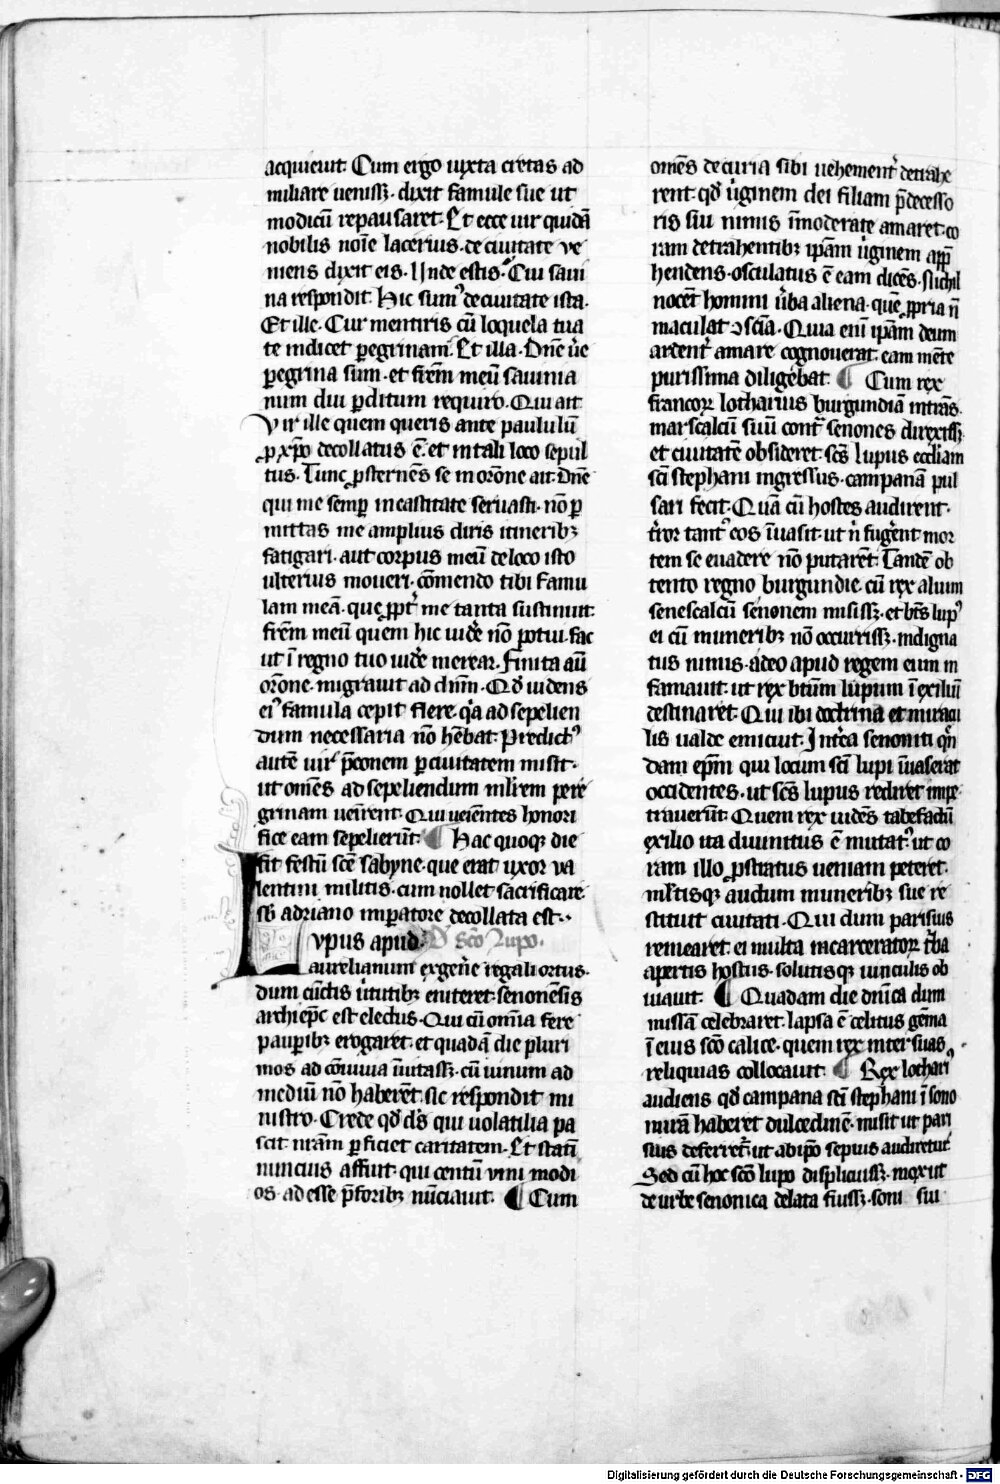 acquieuit. Cum ergo iuxta ciuitas ad
miliare uenissꝫ. dixit famule sue ut
modicū repausaret. Et ecce uir quidā
nobilis noīe lacerius. de ciuitate ue
niens dixit eis. Unde estis. Cui saui
na respondit. Hic sumꝰ de ciuitate ista.
Et ille. Cur mentiris cū loquela tua
te indicet peregrinam. Et illa. Dn̄e ūe
ꝑegrina sum. et fr̄em meū sauinia
num diu ꝑditum requiro. Qui ait
Vir ille quem queris ante paululū
ꝓ xp̄o decollatus ē. et in tali loco sepul
tus. Tunc ꝓsternēs se in or̄one ait. Dn̄e
qui me semꝑ in castitate seruasti. nō ꝑ
mittas me amplius diris itineribꝫ
fatigari. aut corpus meū de loco isto
ulterius moueri. cōmendo tibi famu
lam meā. que ꝓpt̄ me tanta sustinuit.
fr̄em meū quem hic uidē nō potui. fac
ut ī regno tuo uidē merear. Finita aū
or̄one. migrauit ad dn̄m. Qd̄ uidens
eiꝰ famula cepit flere. qa ad sepelien
dum necessaria nō hēbat. Predictꝰ
autē uir p̄conem ꝑ ciuitatem misit.
ut om̄es ad sepeliendum ml̄rem pere
grinam uen̄rent. Qui ueiētes honori
fice eam sepelierūt. ¶ Hac quoqꝫ die
fit festū scē sabyne. que erat uxor ua
lentini militis. cum nollet sacrificare.
sb̄ adriano imperatore decollata est.
Lupus apud D̄ scō Lupo.
aurelianum ex gen̄e regali ortus.
dum cūctis ūtutibꝫ eniteret. senonēsis
archiep̄c est electus. Qui cū om̄ia fere
pauꝑibꝫ erogaret. et quadā die pluri
mos ad cōuiuia īuitassꝫ. cū uinum ad
mediū nō haberēt. sic respondit mi
nistro. Crede qd̄ ds̄ qui uolatilia pa
scit nr̄am perficiet caritatem. Et statī
nuncius affuit. qui centū vini modi
os adesse p̄ foribꝫ nūciauit. ¶ Cum
om̄es de curia sibi uehement̄ detrahe
rent. qd̄ ūginem dei filiam p̄decesso
ris sui nimis īmoderate amaret. co
ram detrahentibꝫ ipām ūginem app̄
hendens. osculatus ē eam dicēs. Nichil
nocēt homini ūba aliena. quē ꝓpria n̄
maculat ꝯscīa. Quia enī ipām deum
ardent̄ amare cognouerat. eam mēte
purissima diligebat. ¶ Cum rex
francoꝝ lotharius burgundiā intrās.
marscalcū suū cont̄ senones direxissꝫ
et ciuitatē obsideret. scs̄ lupus eccl̄iam
scī stephani ingressus. campanā pul
sari fecit. Quā cū hostes audirent.
t̄ror tantꝰ eos īuasit. ut n̄ fuḡent mor
tem se euadere nō putarēt. Tandē ob
tento regno burgundie. cū rex alium
senescalcū senonem misissꝫ. et bt̄s lupꝰ
ei cū muneribꝫ nō occurissꝫ. indigna
tus nimis. adeo apud regem eum in
famauit. ut rex bt̄um lupum ī exiliū
destinaret. Qui ibi doctrina et miracu
lis ualde emicuit. Int̄ea senoniti qn̄
dam ep̄m qui locum scī lupi īuaserat
occidentes. ut scs̄ lupus rediret impe
trauerūt. Quem rex uidēs tabefactū
exilio ita diuinitus ē mutatꝰ. ut co
ram illo ꝓstratus ueniam peteret.
ml̄tisqꝫ auctum muneribꝫ sue re
stituit ciuitati. Qui dum parisius
remearet. ei multa incarceratoꝝ t̄ba
apertis hostiis. solutisqꝫ uinculis ob
uiauit. ¶ Quadam die dn̄ica dum
missā celebraret. lapsa ē celitus gēma
ī eius scō calice. quem rex inter suas
reliquias collocauit. ¶ Rex lothariꝰ
audiens qd̄ campana scī stephani ī sono
mirā haberet dulcedinē. misit ut pari
sius deferret̄. ut ab ip̄o sepius audiretur.
Sed cū hoc scō lupo displicuissꝫ. mox ut
de urbe senonica delata fuissꝫ. soni sui
Digitalisierung gefördert durch die Deutsche Forschungsgemeinschaft - DFG